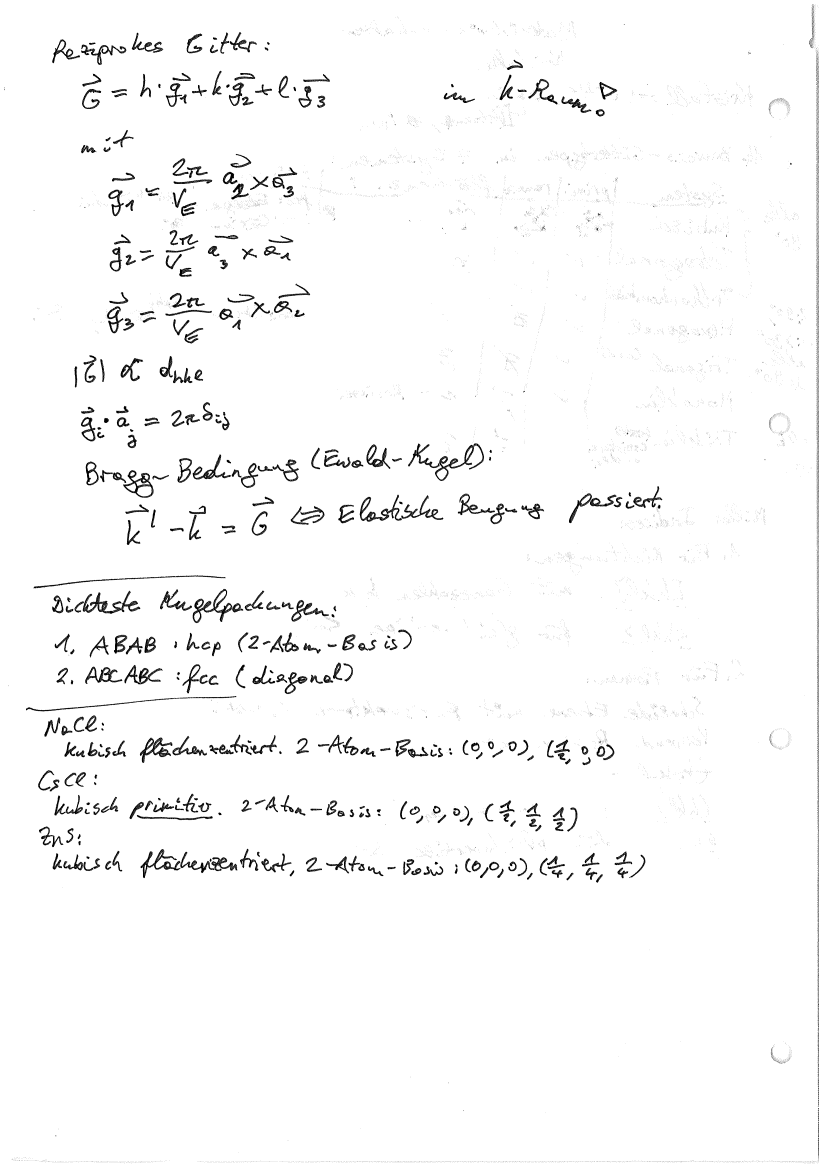 Reziprokes Gitter:
G⃗ = h·g⃗₁ + k·g⃗₂ + l·g⃗₃ im k⃗-Raum!
mit
g⃗₁ = 2π/V_E a⃗₂ × a⃗₃
g⃗₂ = 2π/V_E a⃗₃ × a⃗₁
g⃗₃ = 2π/V_E a⃗₁ × a⃗₂
|G⃗| ∝ d_hkl
g⃗_i · a⃗_j = 2π δ_ij
Bragg-Bedingung (Ewald-Kugel):
k⃗' - k⃗ = G⃗ ⇔ Elastische Beugung passiert.
Dichteste Kugelpackungen:
1. ABAB : hcp (2-Atom-Basis)
2. ABCABC : fcc (diagonal)
NaCl:
kubisch flächenzentriert. 2-Atom-Basis: (0,0,0), (1/2, 0, 0)
CsCl:
kubisch primitiv. 2-Atom-Basis: (0,0,0), (1/2, 1/2, 1/2)
ZnS:
kubisch flächenzentriert, 2-Atom-Basis: (0,0,0), (1/4, 1/4, 1/4)